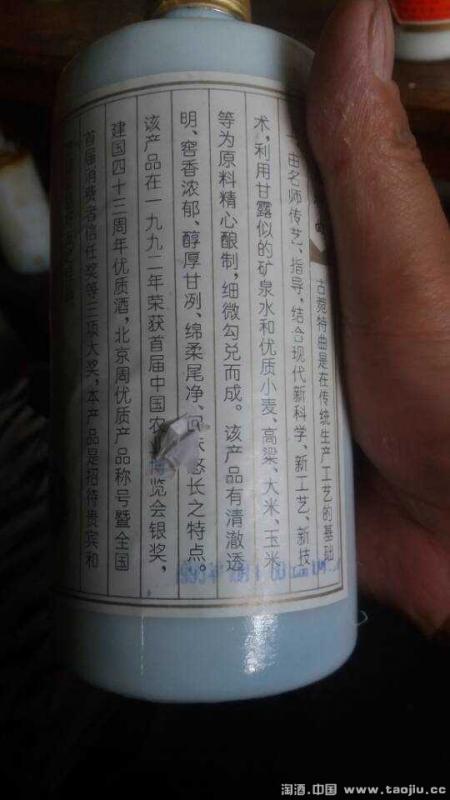 古菀特曲是在传统生产工艺的基础
由名师传艺、指导,结合现代新科学、新工艺、新技
术,利用甘露似的矿泉水和优质小麦、高粱、大米、玉米
等为原料精心酿制,细微勾兑而成。该产品有清澈透
明、窖香浓郁、醇厚甘冽、绵柔尾净、味悠长之特点。
该产品在一九九二年荣获首届中国农博览会银奖,
建国四十三周年优质酒,北京周优质产品称号暨全国
首届消费者信任奖等三项大奖,本产品是招待贵宾和
淘酒.中国 www.taojiu.cc